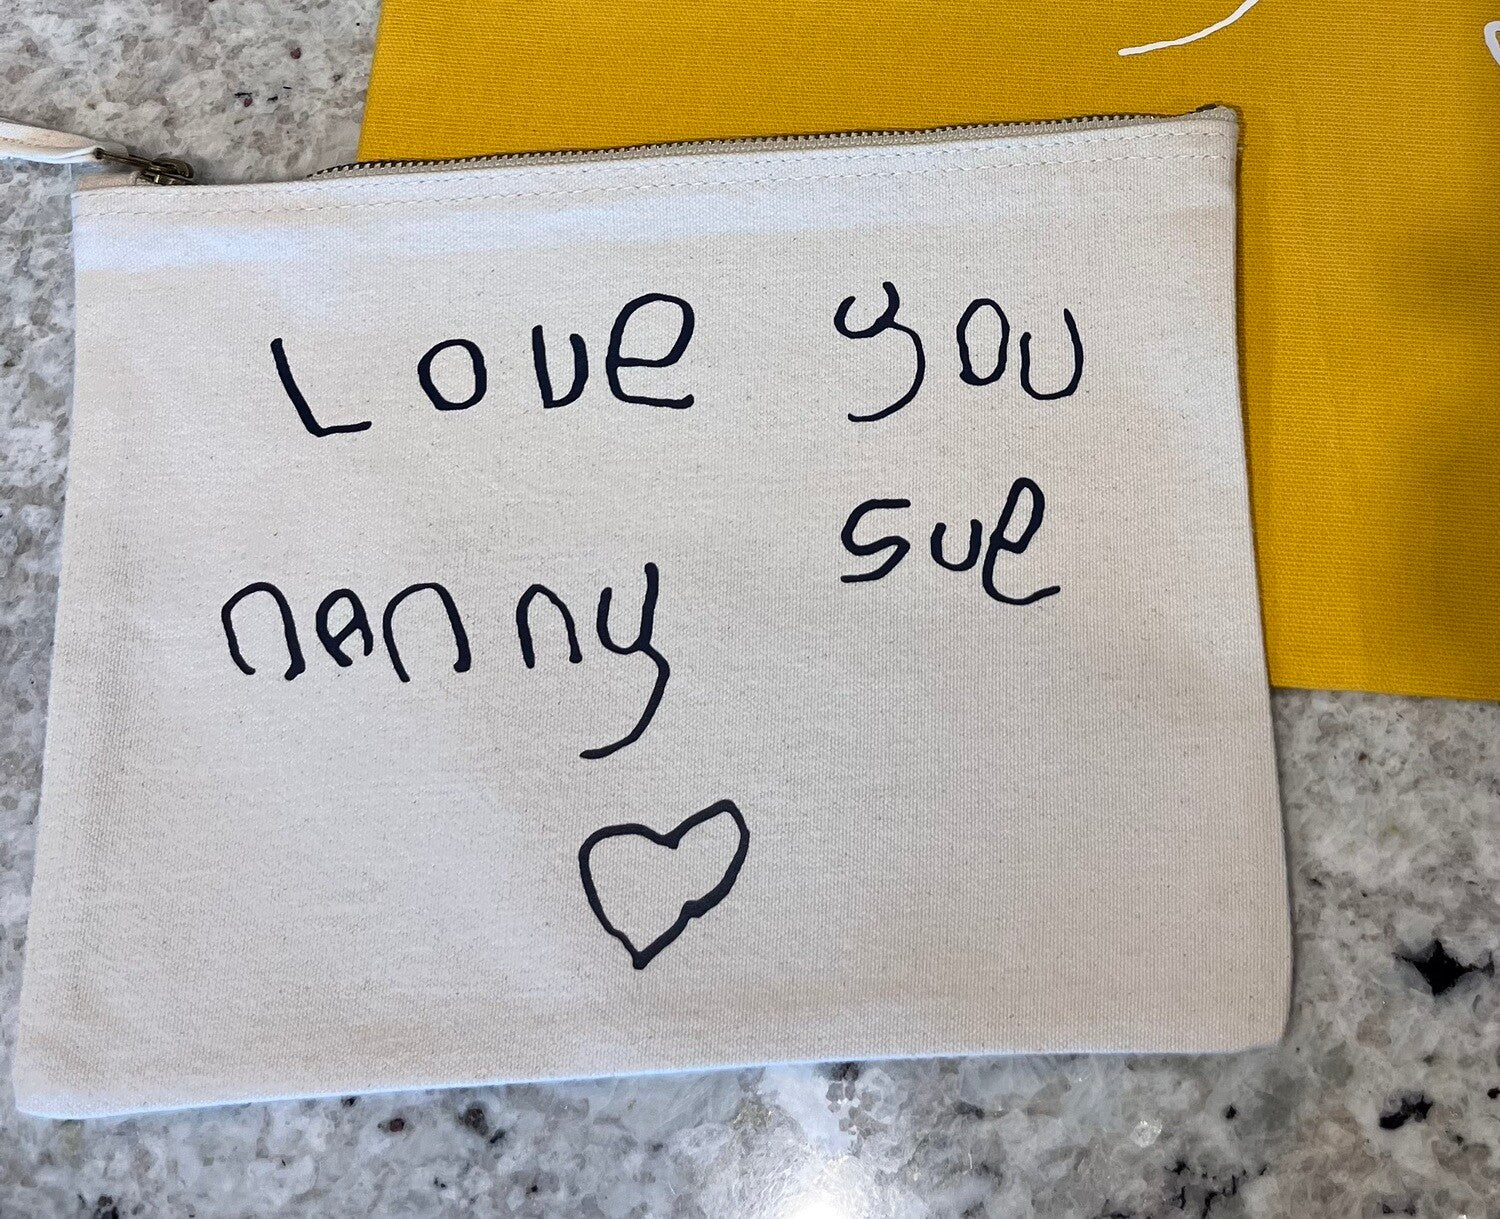 Love you
nanny sue